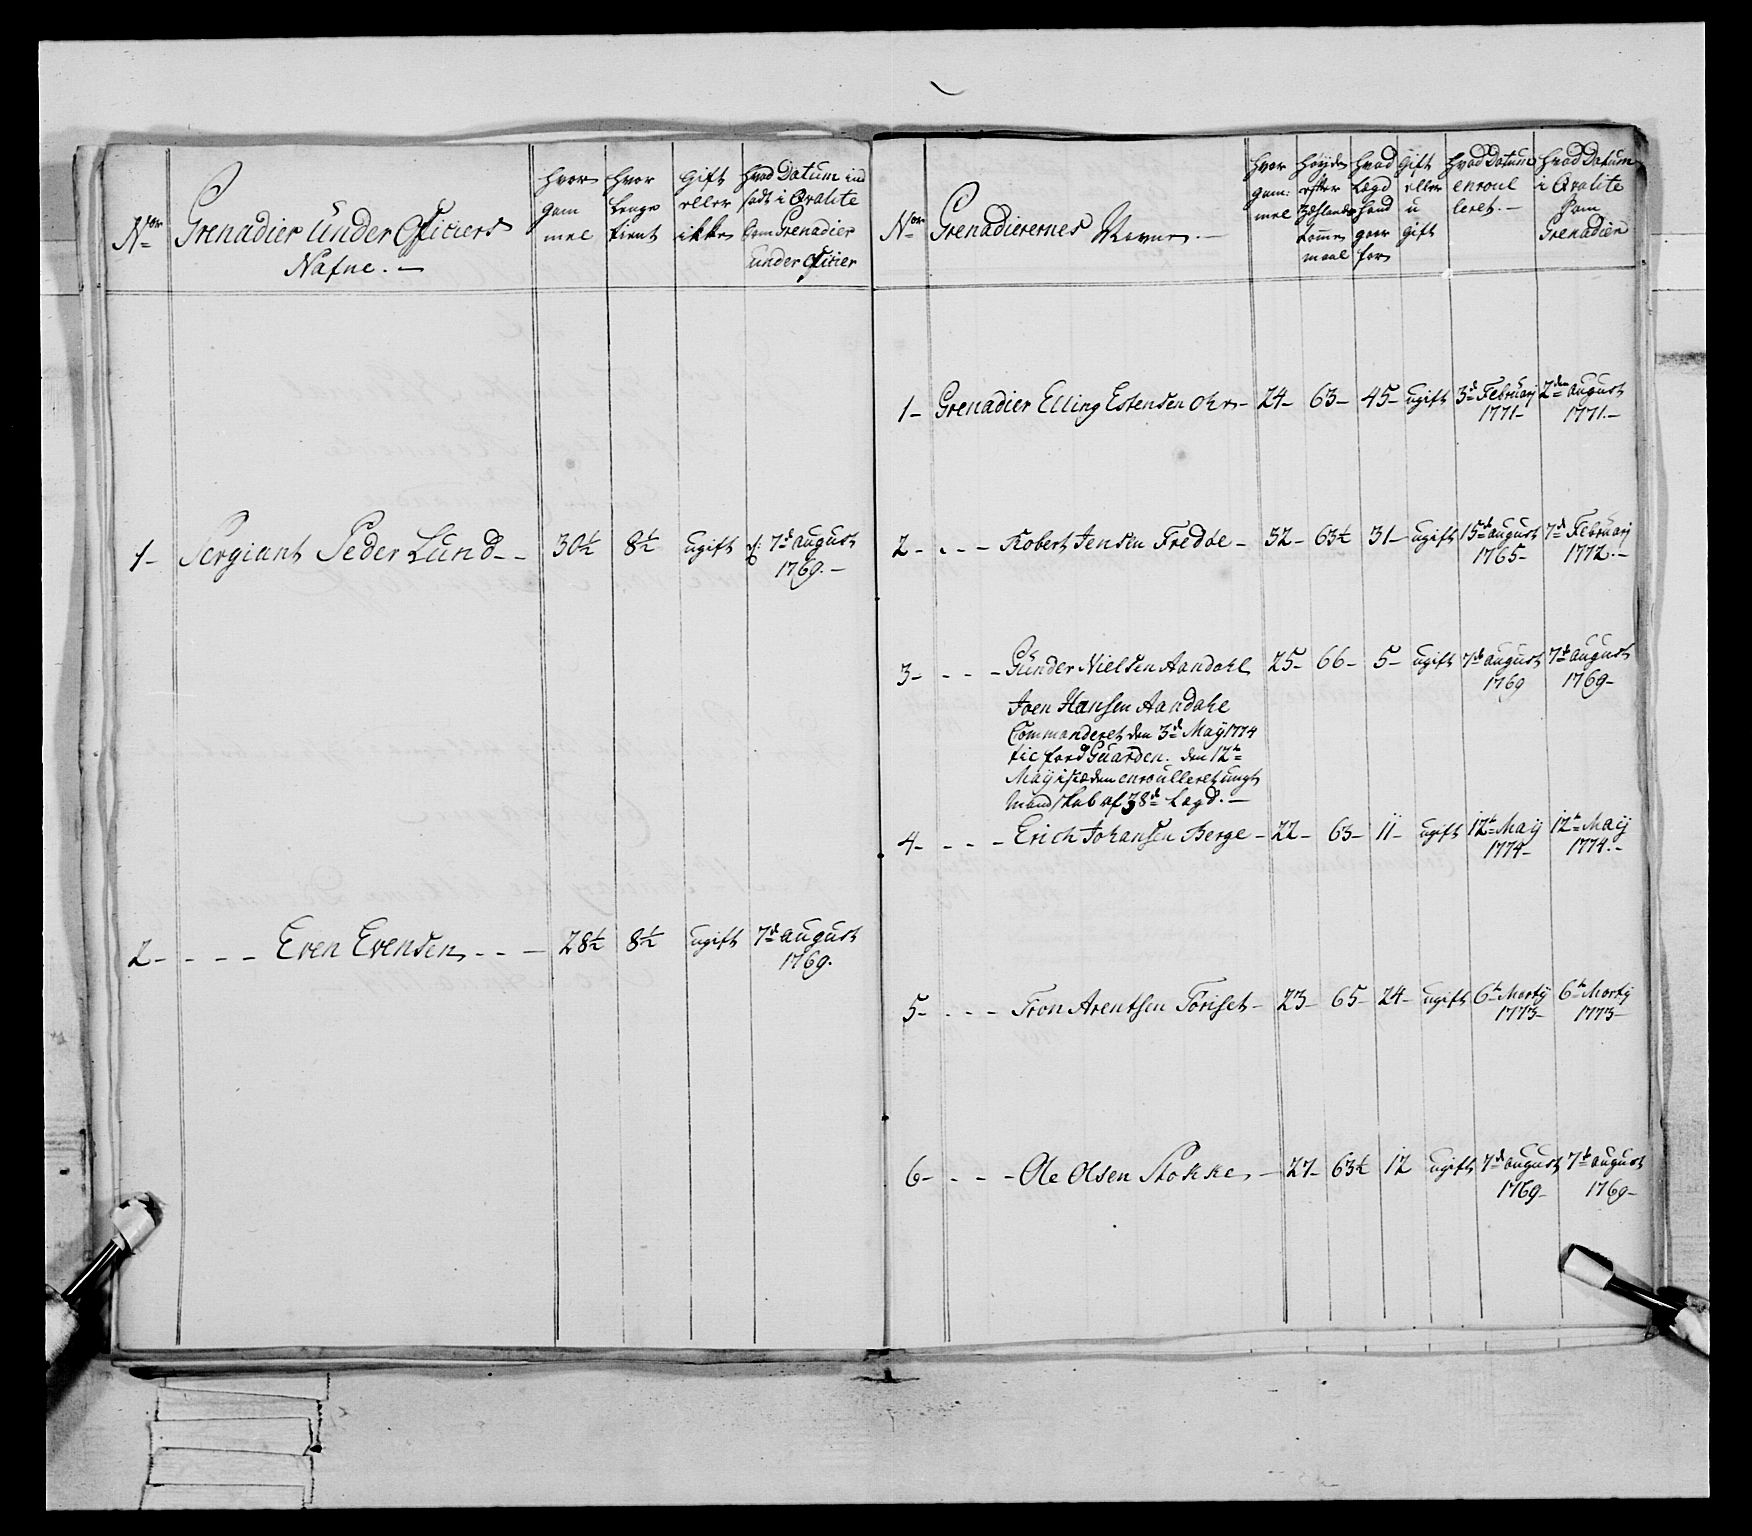 Nor Grenadier Under Officiers Nafne. — hvor gam mel hvor lenge tient Gift eller ikke hvad Datum ind sadt i Qvalite som Grenadier under Officier
1– Sergiant Peder Lund – – 30½ 8½ ugift d: 7de august
1769. –
2– – – – Even Evensen – – – 28½ 8½ ugift 7de august
1769.
Nor Grenadierernes Navne. — hvor gam: mel høyde efter Tomme maal hvad Lægd hand gaar for Gift eller u gift hvad Datum enroul leret. – hvad Datum i Qvalite som Grenadier
1– Grenadier Elling Estensen Ohr– 24– 63– 45– ugift 3de Februarij 2den august
1771– 1771.–
2– – – – Robert Jensen Fredbe– 32– 63½ 31– ugift 15de august 7de Februarij
1765– 1772.–
3– – – – Gunder Nielsen Aandahl 25– 66– 5– ugift 7de august 7de august
1769 1769–
Joen Hansen Aandahl
Commanderet den 3de Maij 1774
til ford Guarden. den 12te
Maij i stæden enroulleret ungt
Mandskab af 38de Lægd. —
4– – – – Erich Johansen Berge – 22– 63– 11– ugift 12te Maij 12te Maij
1774– 1774.–
5– – – – Tron Arentsen Toriset– 23– 65– 24– ugift 6te Martij 6te Martij
1773– 1773–
6– – – – Ole Olsen Stokke – 27– 63½ 12 ugift 7de august 7de august
1769– 1769–